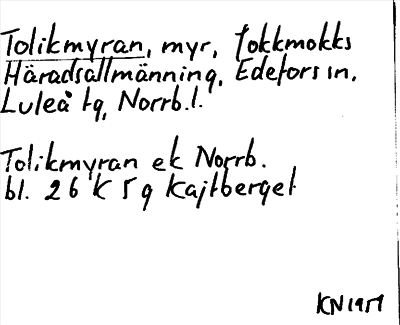 Tolikmyran, myr, Jokkmokks
Häradsallmänning, Edefors sn,
Luleå tg, Norrb.l.
Tolikmyran ek Norrb.
bl. 26 K 5 g Kajtberget
KN 1957